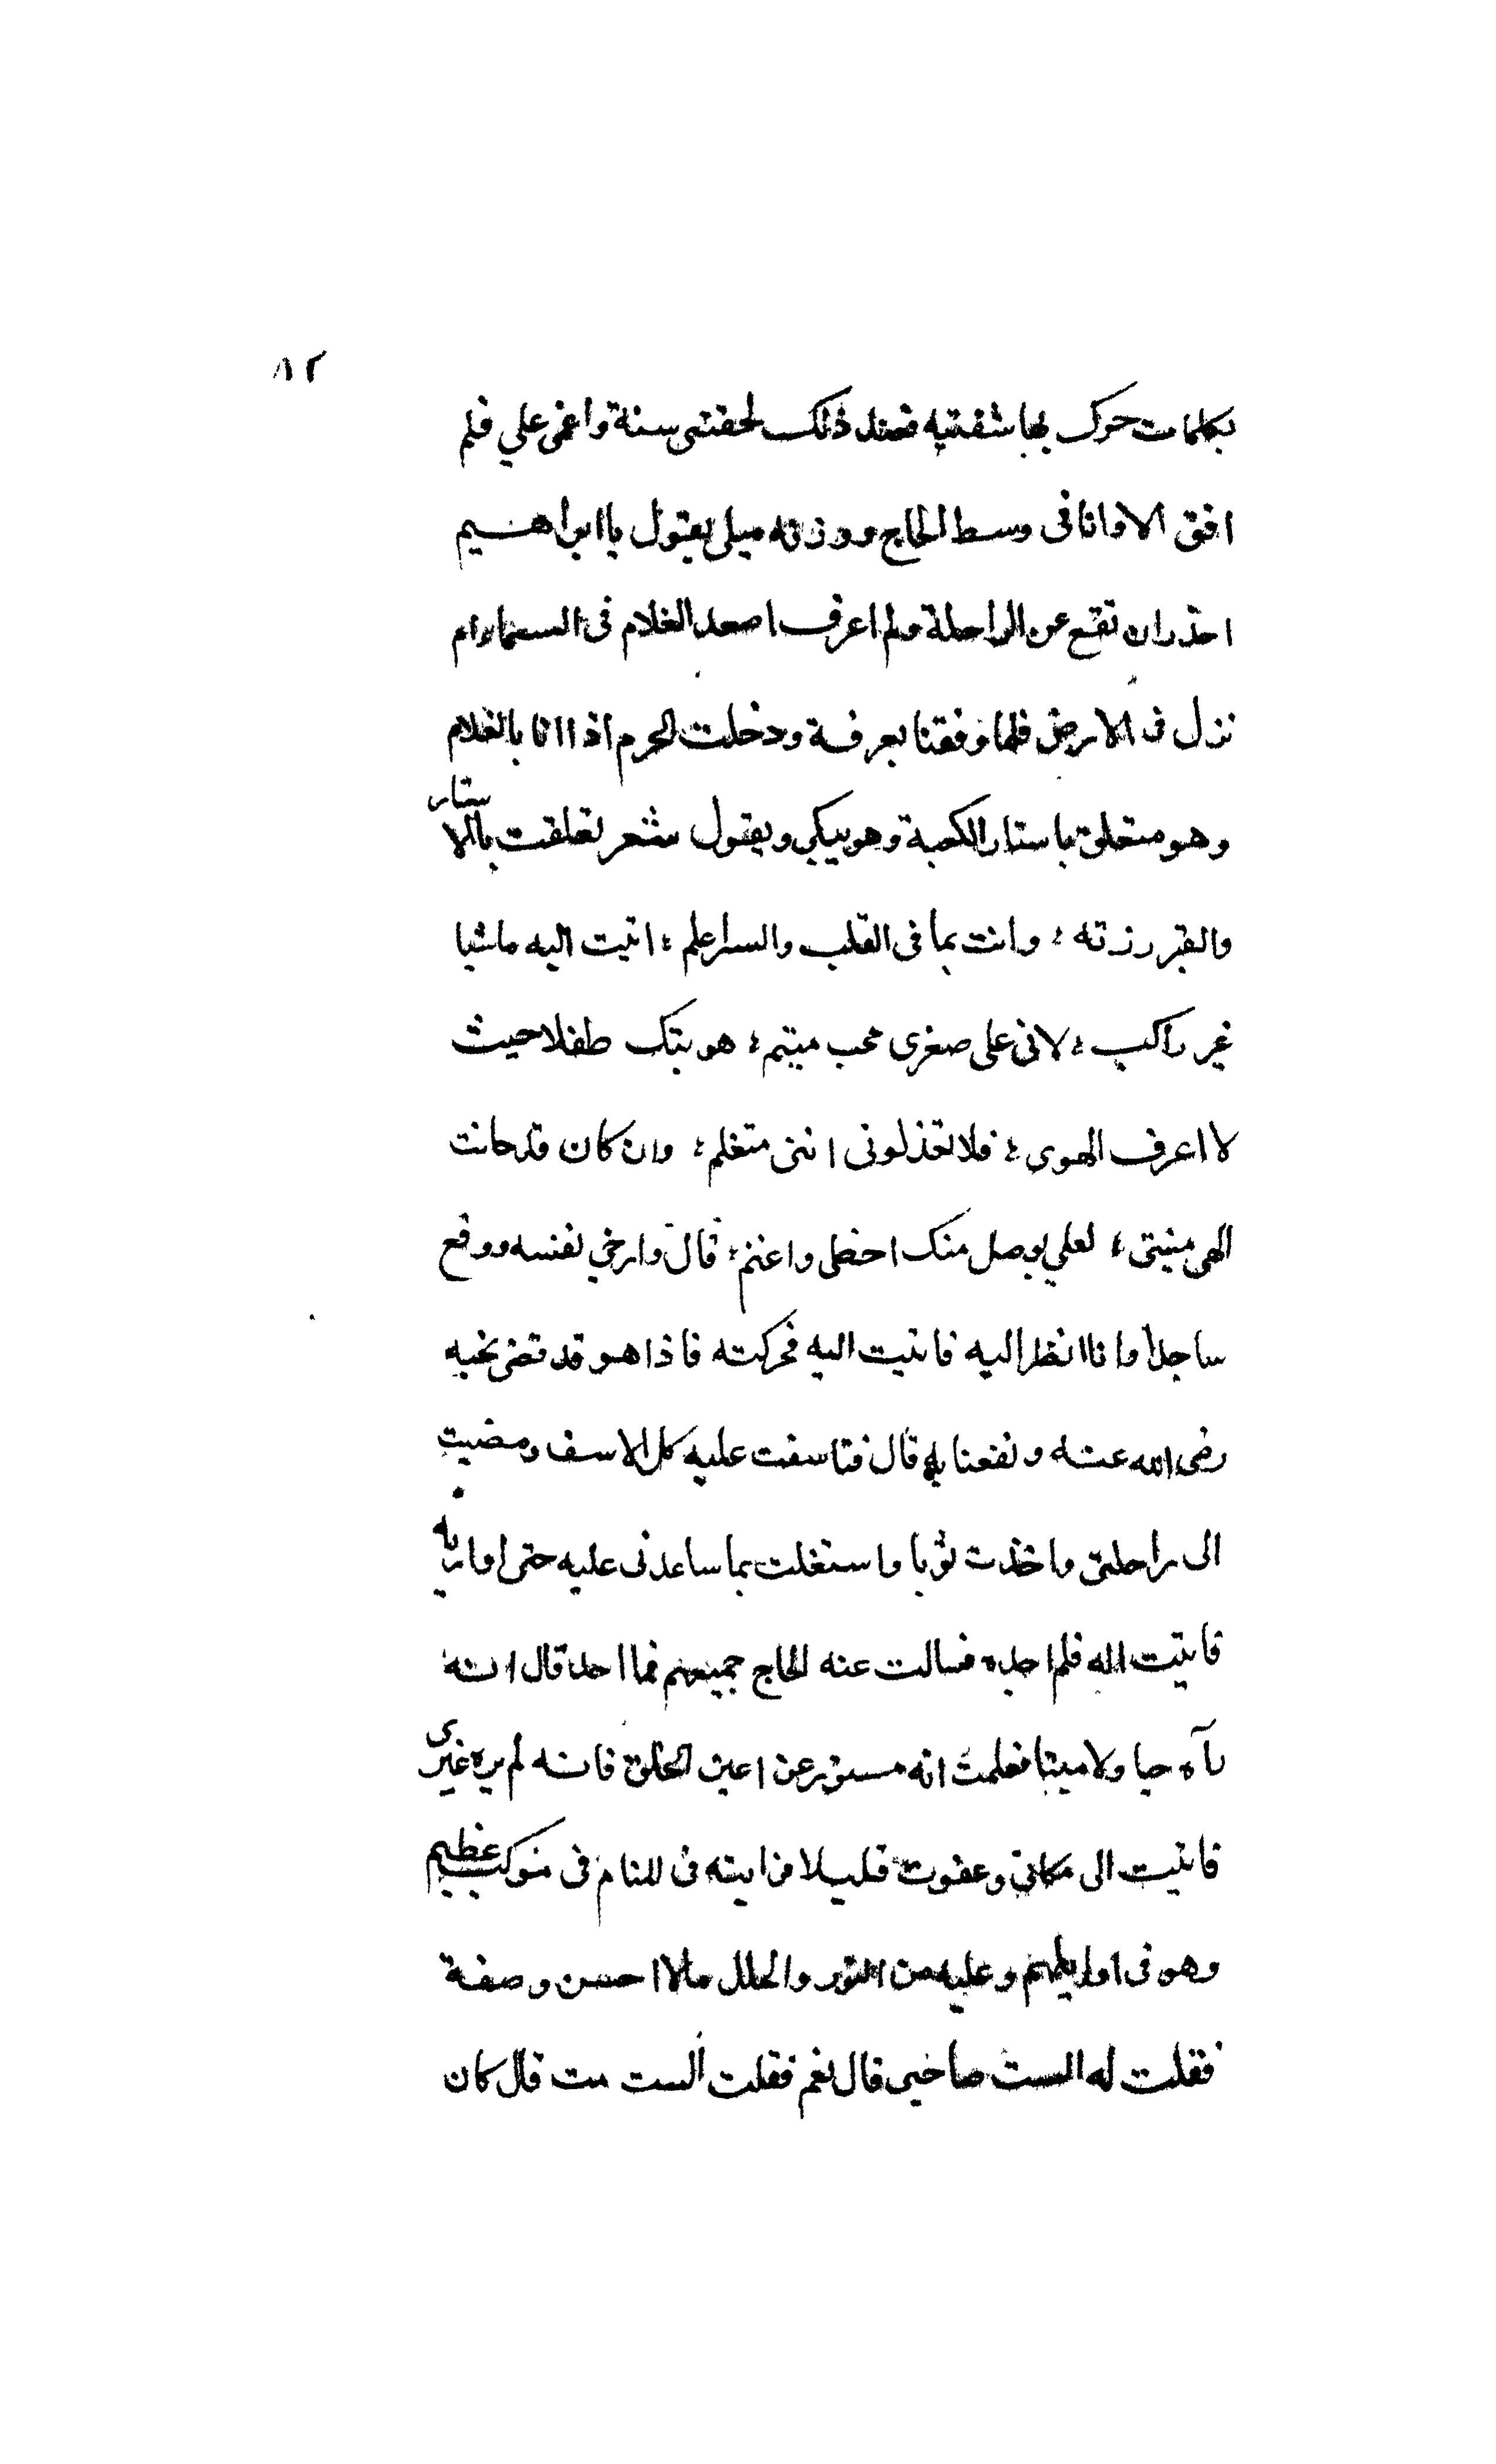 ٨٢
بكلمات حرك بها شفتيه فعند ذلك لحقتنى سنة واغمى علي فلم
افق الا وانا فى وسط الحاج و ميلى يقول يا ابراهيم
احذر ان تقع عن الراحلة ولم اعرف اصعد الغلام فى السماء ام
نزل فى الارض فلما وقفنا بعرفة ودخلت الحرم اذا انا بالغلام
وهو متعلق باستار الكعبة وهو يبكي ويقول شعر تعلقت بالاستار
والقبر زرته ؛ وانت بما فى القلب والسر اعلم ؛ اتيت اليه ماشيا
غير راكب ؛ لانى على صغرى محب متيم ؛ هويتك طفلا حيث
لا اعرف الهوى ؛ فلا تعذلونى اننى متعلم ؛ وان كان قد حانت
الهى منيتى ؛ لعلي بوصل منك احظى واغنم ؛ قال وارخي نفسه ووقع
ساجدا وانا انظر اليه فاتيت اليه فحركته فاذا هو قد قضى نحبه
رضى الله عنه ونفعنا به قال فتاسفت عليه كل الاسف ومضيت
الى راحلتى واخذت ثوبا واستغلت بما ساعدنى عليه حتى اواريه
فاتيت اليه فلم اجده فسالت عنه الحاج جميعهم فما احد قال انه
رآه حيا ولا ميتا فعلمت انه مستور عن اعين الخلق فانه لم يره غيرى
فاتيت الى مكانى وغفوت قليلا فرايته فى المنام فى موكب عظيم
وهو فى اوايلهم وعليه من النور والحلل مالا احسن وصفة
فقلت له الست صاحبى قال نعم فقلت الست مت قال كان